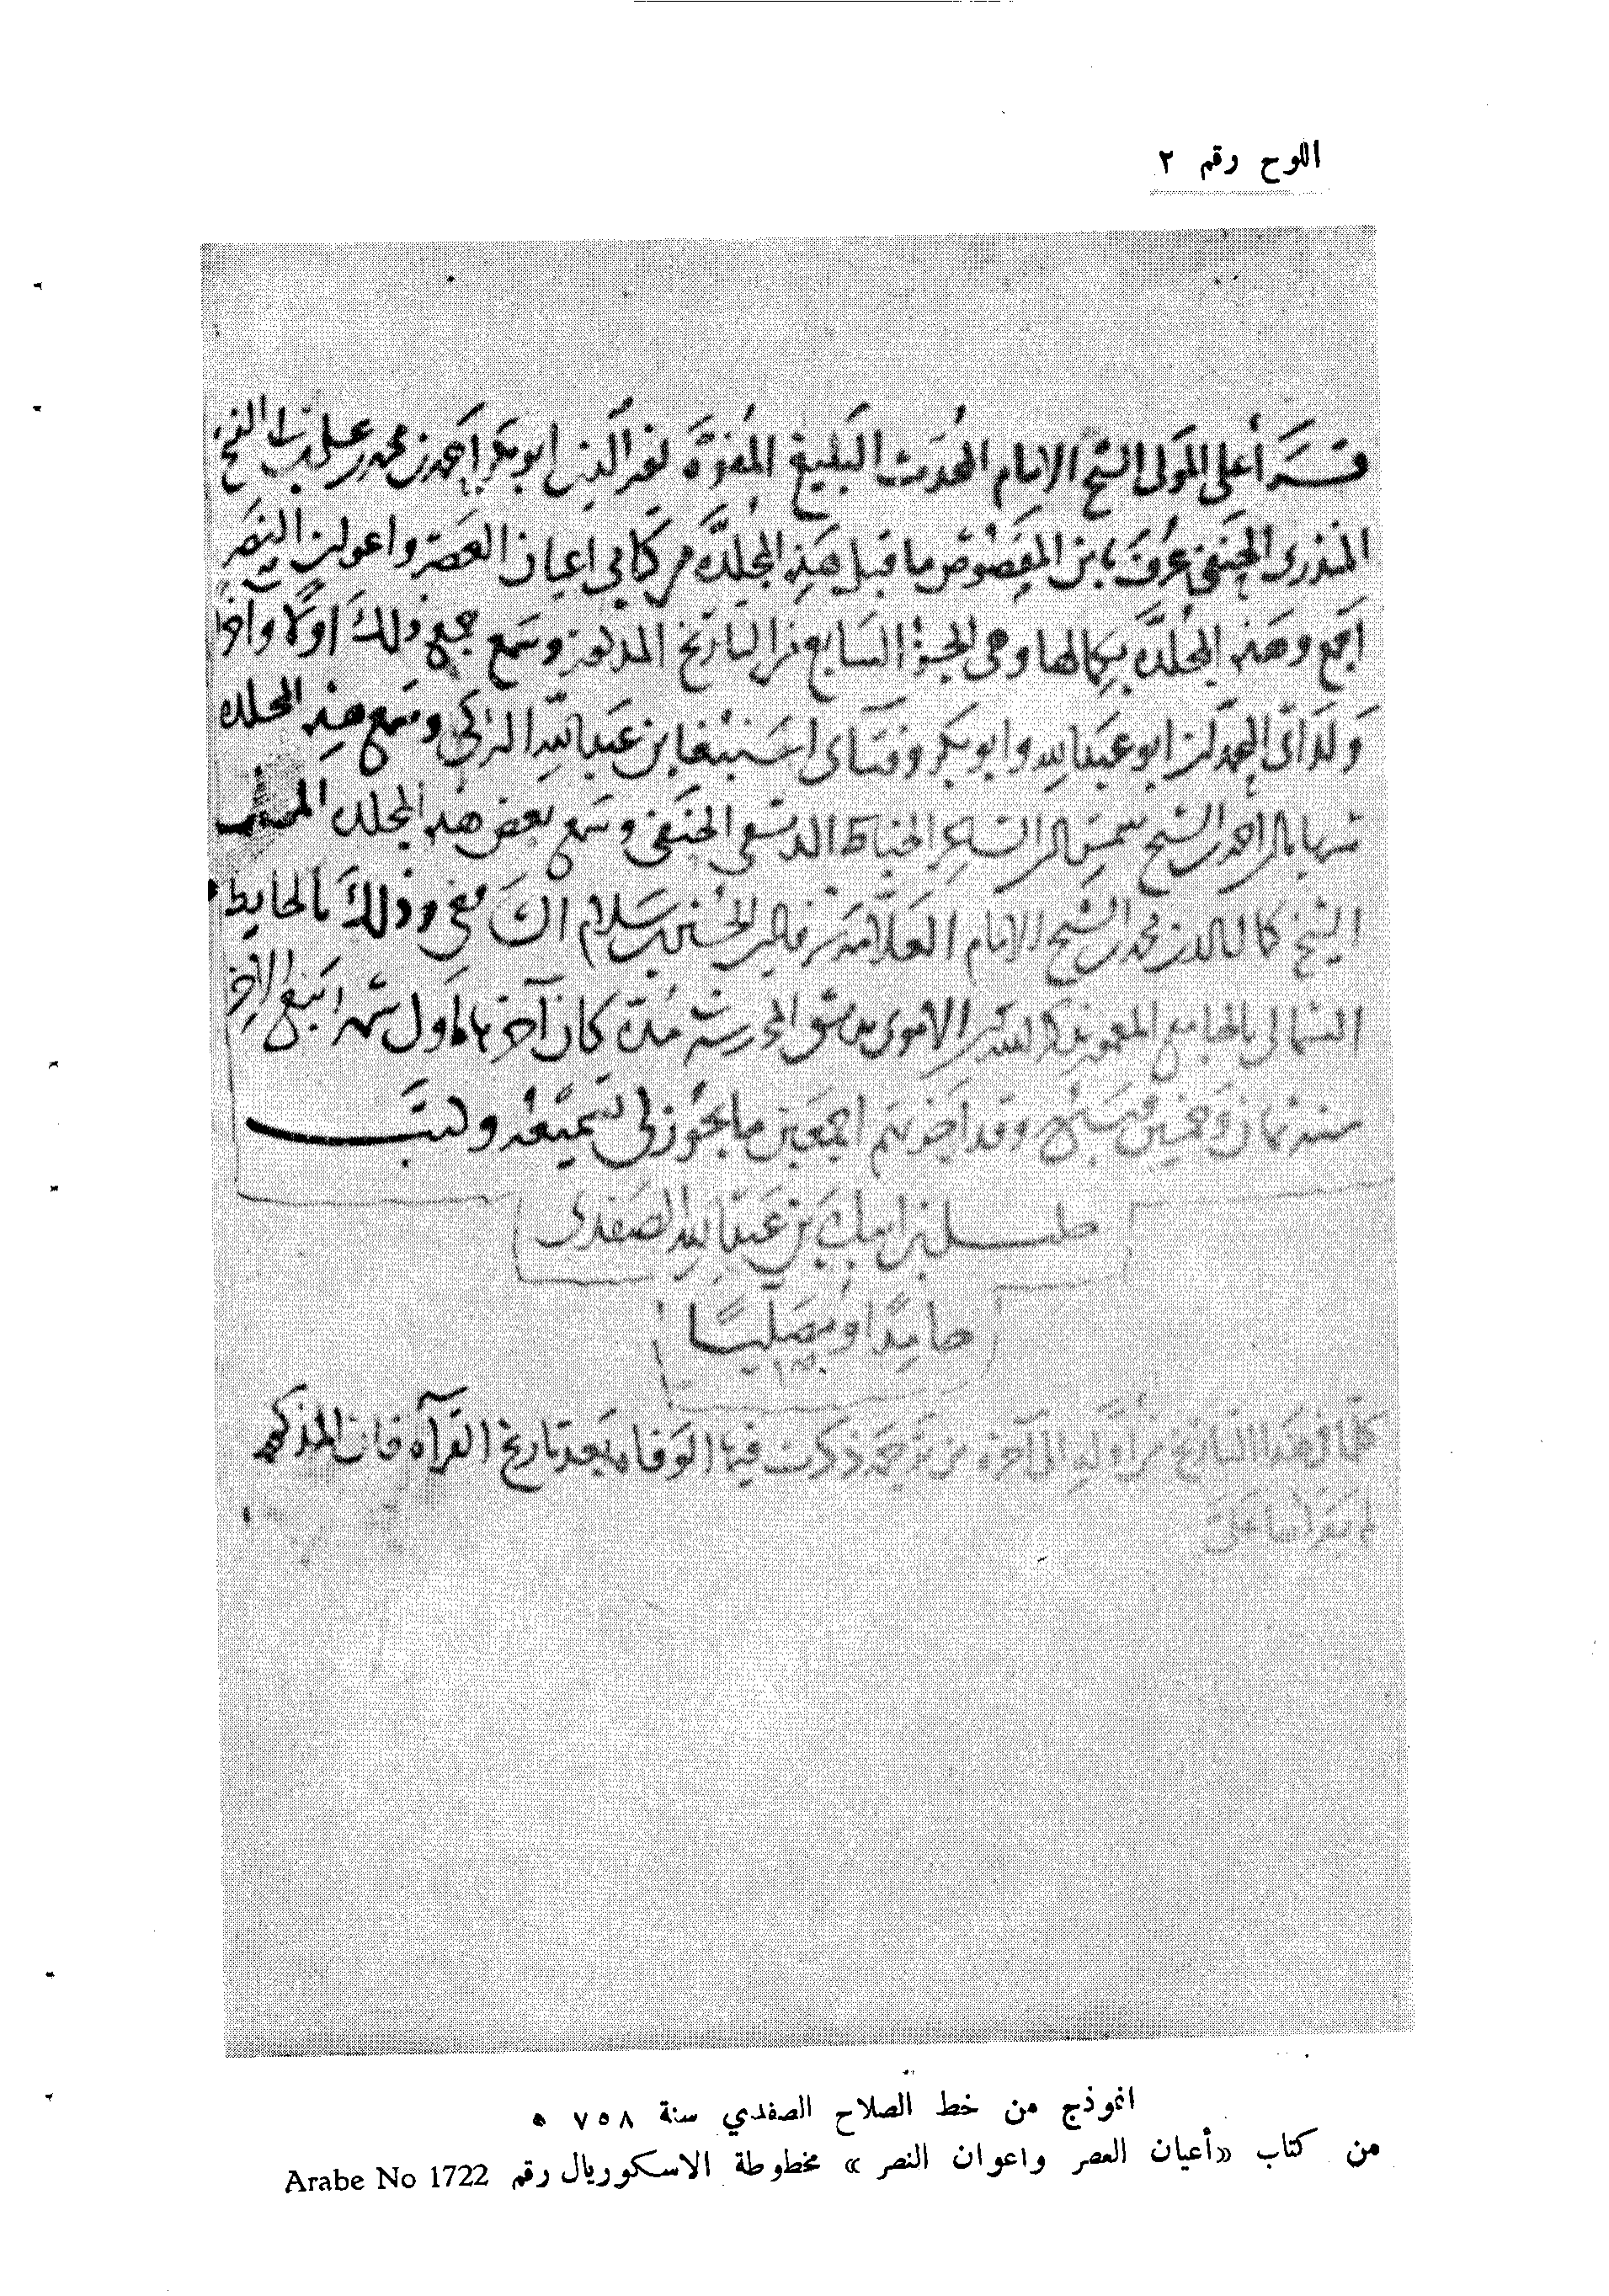 اللوح رقم ٢
قرأ على المولى الشيخ الامام المحدث البليغ المفوه ابو بكر احمد بن محمد بن علي
المنذري الحنفي عرف بابن المقصوص ما قبل هذه المجلده من كتابي اعيان العصر واعوان النصر
اجمع وهذه المجلده بكمالها وهي الجزء السابع من التاريخ المذكور وسمع جميع ذلك اولا وآخرا
ولداي المحمدان ابو عبد الله وابو بكر وفتاي اسنبغا بن عبد الله التركي وسمع هذه المجلده
شهاب الدين احمد بن الشيخ شمس الدين الخياط الدمشقي الحنفي وسمع بعض هذه المجلده
الشيخ كمال الدين محمد بن الشيخ الامام العلامة وذلك بالحايط
الشمالي بالجامع المعمور بذكر الله الاموي بدمشق المحروسة في مدة كان آخرها اول شهر ربيع الآخر
سنة ثمان وخمسين وسبع مئة وقد اجزتهم اجمعين ما يجوز لي تسميعه وكتب
خليل بن ايبك بن عبد الله الصفدي
حامدا ومصليا
كلما في هذا التاريخ من اوله الى آخره من ترجمة ذكرت فيها الوفاة بعد تاريخ القرآه فان المذكور
لم يقراها علي
انموذج من خط الصلاح الصفدي سنة ٧٥٨ ه
من كتاب «أعيان العصر واعوان النصر» مخطوطة الاسكوريال رقم Arabe No 1722